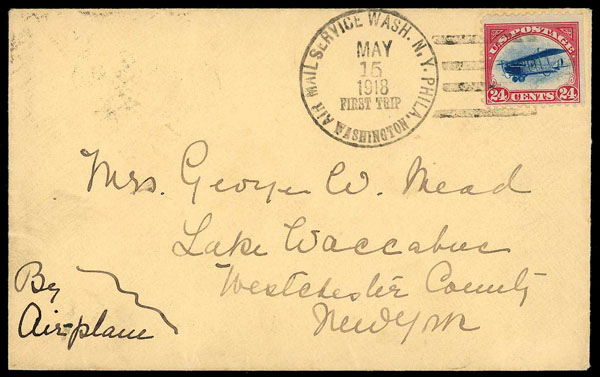 AIR MAIL SERVICE WASH. N.Y. PHILA.
MAY
15
1918
FIRST TRIP
WASHINGTON
U.S. POSTAGE
24 CENTS 24
Mrs. George W. Mead
Lake Waccabuc
Westchester County
New York
By
Airplane